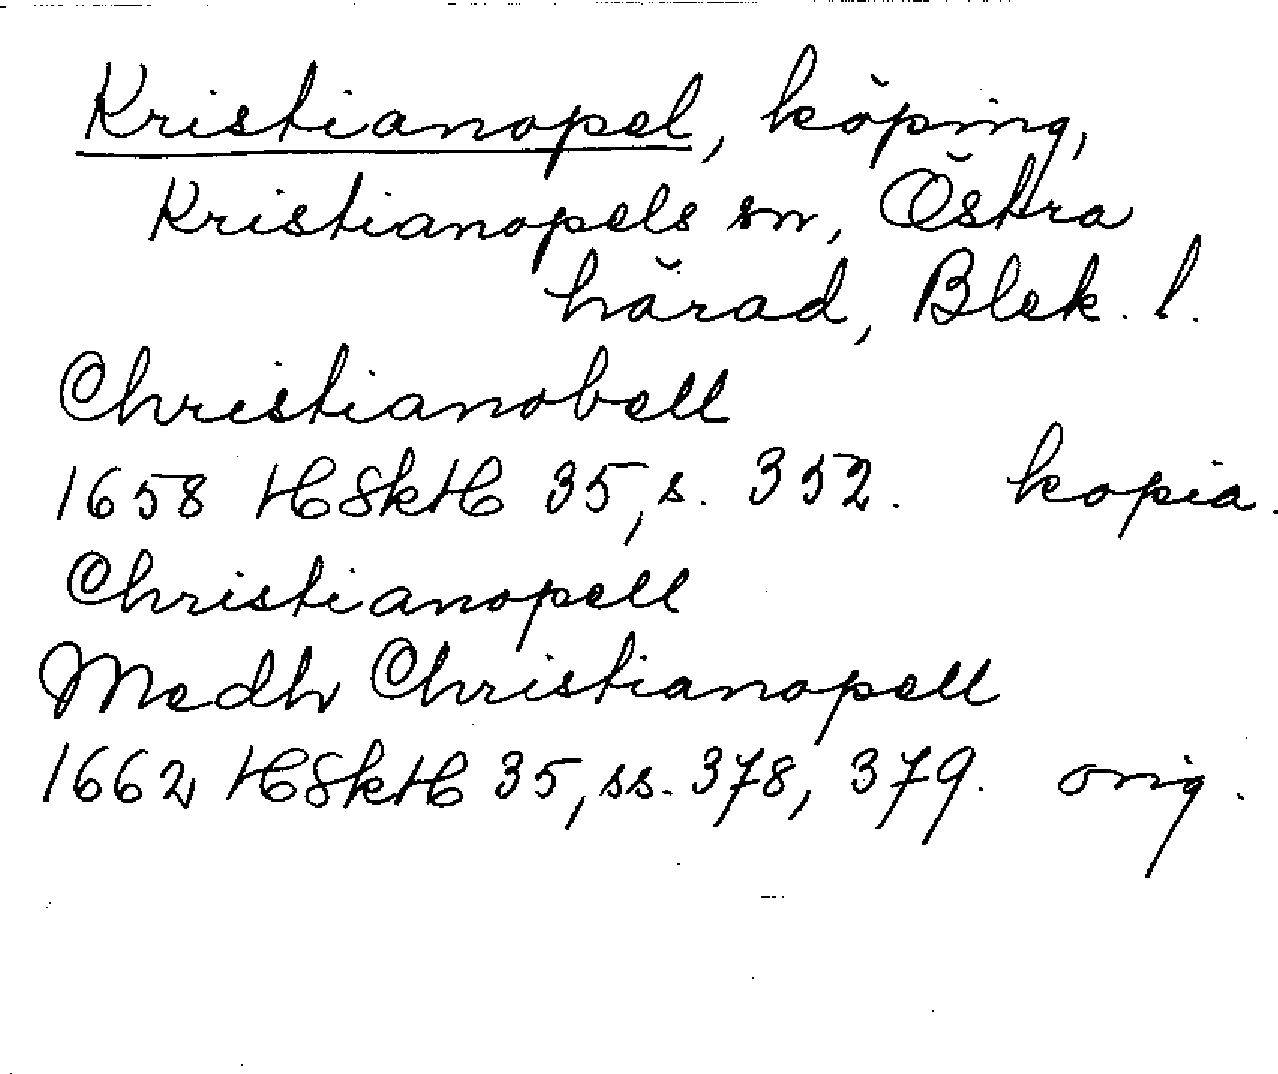 Kristianopel, köping,
Kristianopels sn, Östra
härad, Blek. l.
Christianobell
1658 HSkH 35, s. 352. kopia.
Christianopell
Medh Christianopell
1662 HSkH 35, ss. 378, 379. orig.